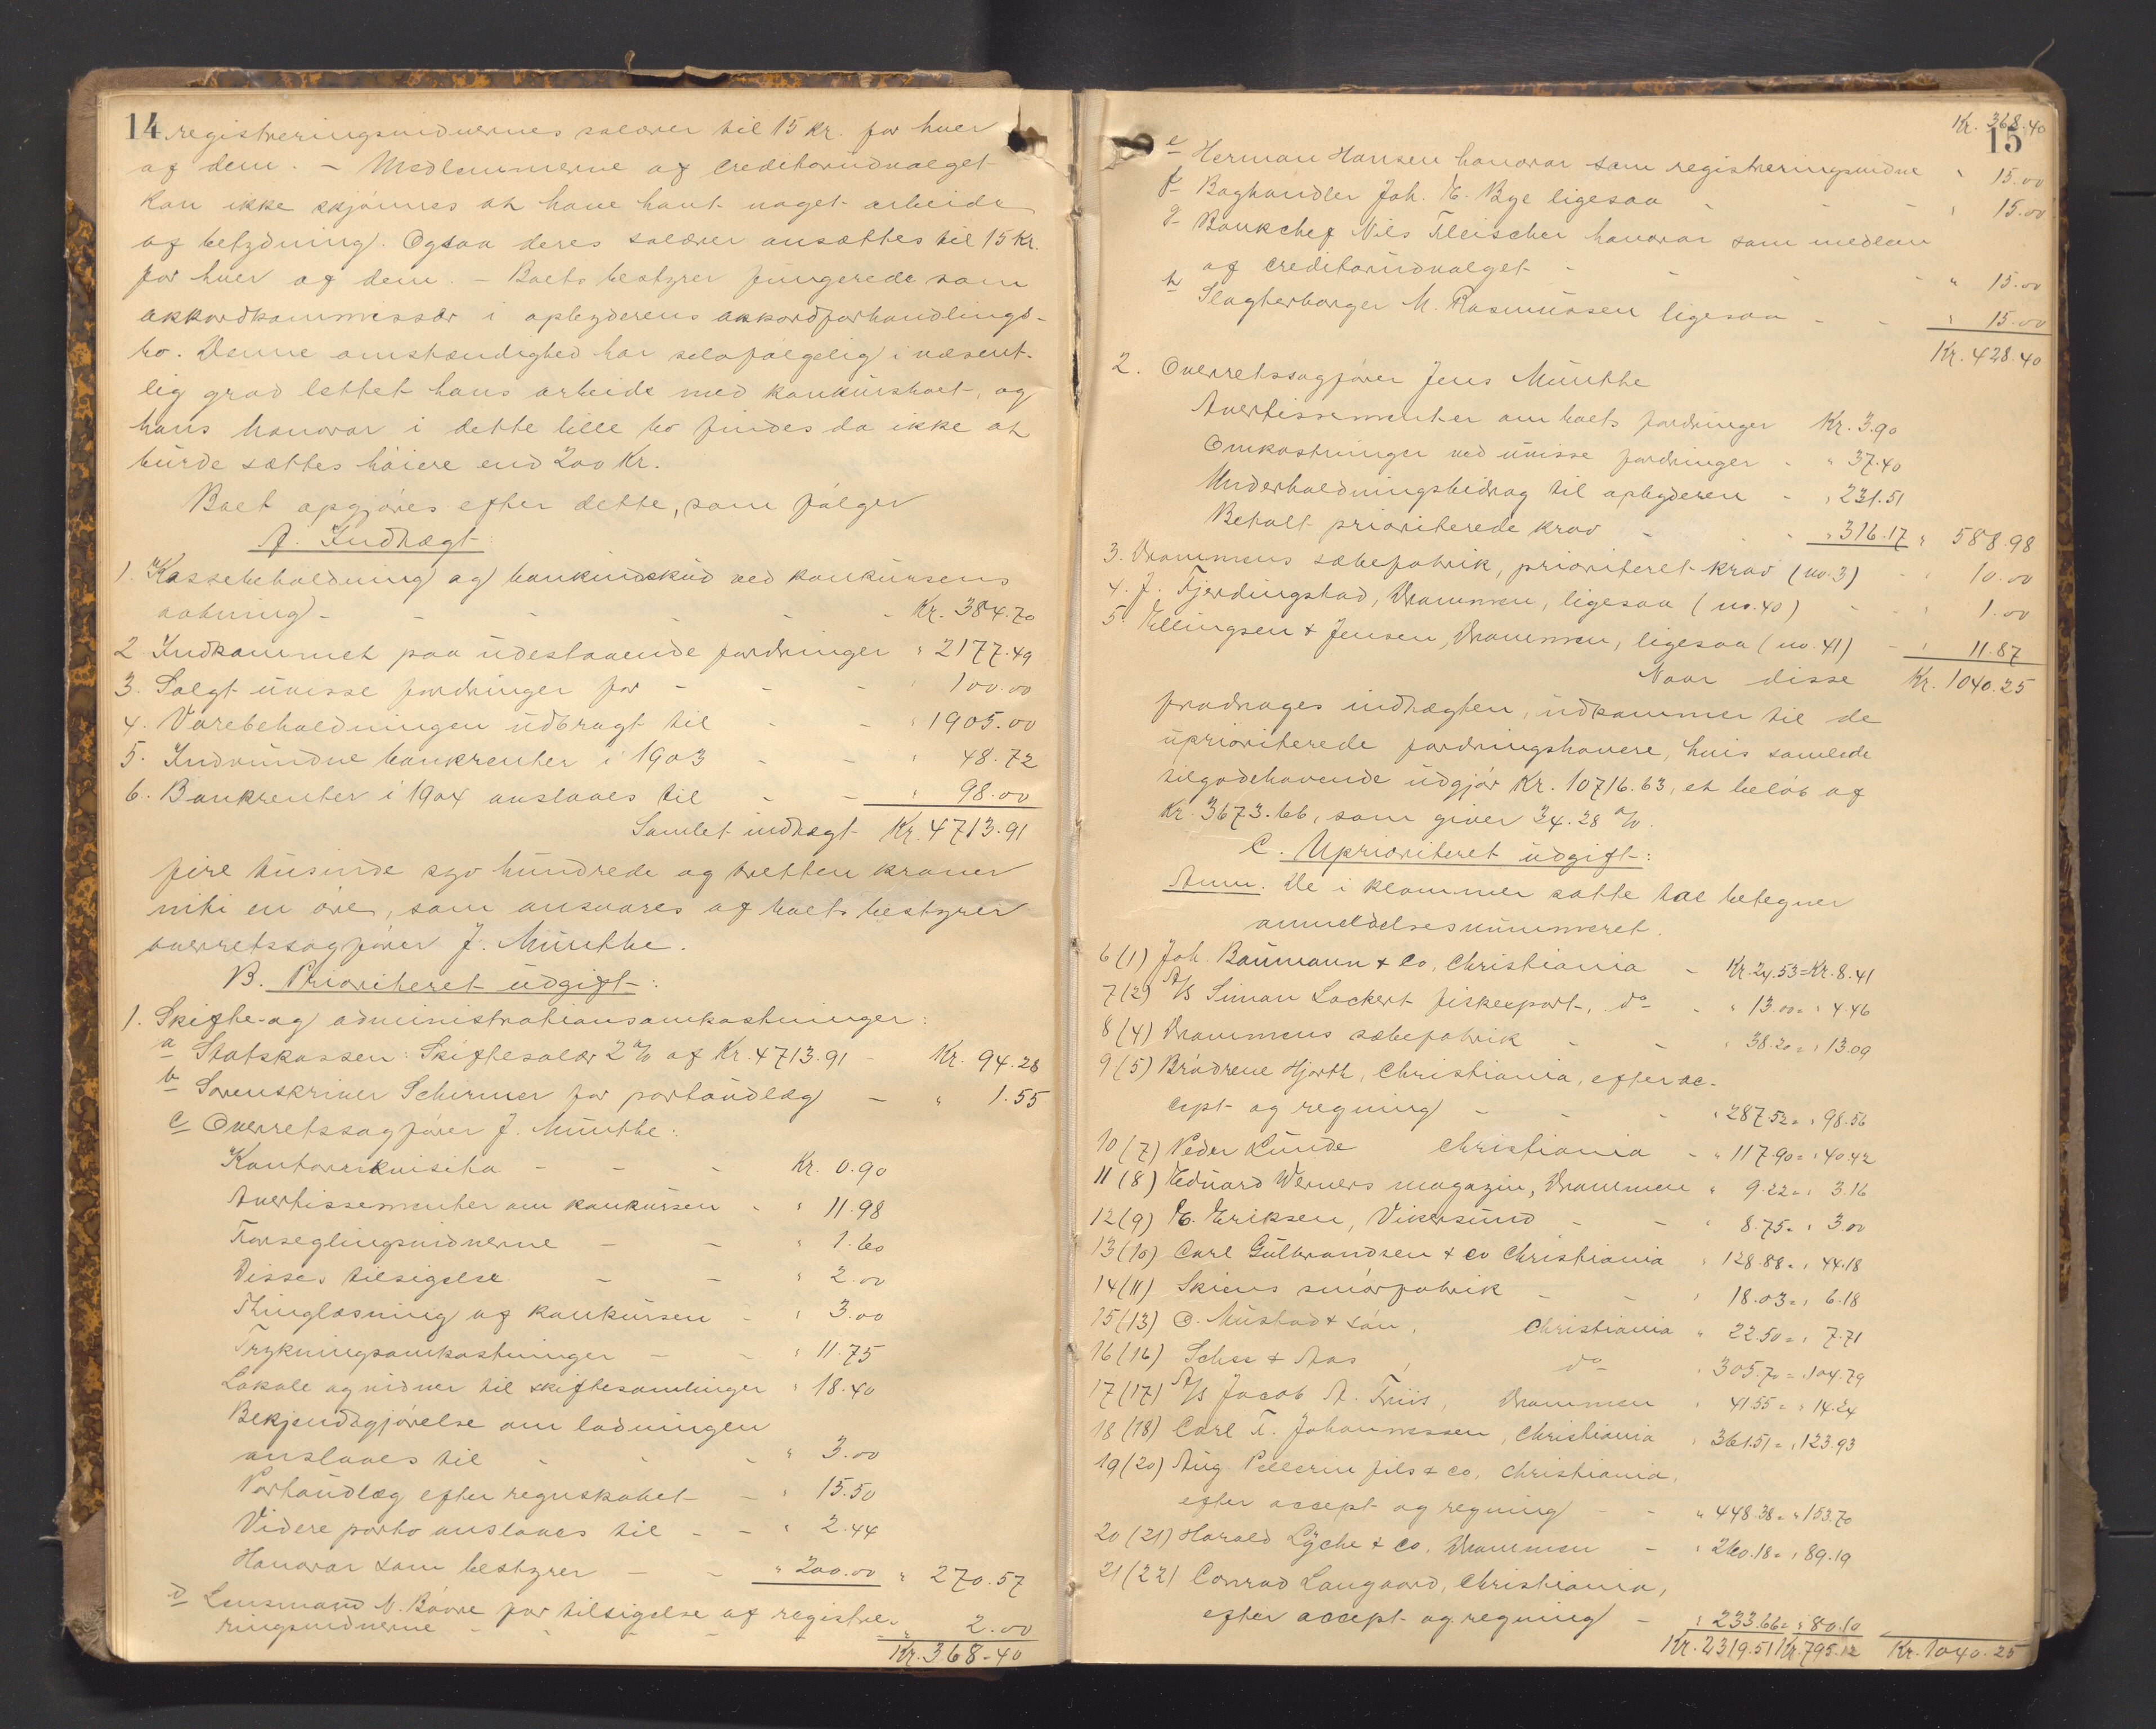 14
registreringsvidnernes salærer til 15 kr. for hver
af dem. - Medlemmerne af creditorudvalget
kan ikke skjønnes at have havt noget arbeide
af betydning. Ogsaa deres salærer ansættes til 15 Kr.
for hver af dem. - Boets bestyrer fungerede som
akkordkommissær i opbyderens akkordforhandlings-
bo. Denne omstændighed har selvfølgelig i væsent-
lig grad lettet hans arbeide med konkursboet, og
hans honorar i dette lille bo findes da ikke at
burde sættes høiere end 200 Kr.
Boet opgjøres efter dette, som følger
A. Indtægt:
1. Kassebeholdning og bankindskud ved konkursens
aabning - - - - - Kr. 384.70
2 Indkommet paa udestaaende fordringer " 2177.49
3. Solgt uvisse fordringer for - - - " 100.00
4. Varebeholdningen udbragt til - - " 1905.00
5. Indvundne bankrenter i 1903 - - " 48.72
6. Bankrenter i 1904 anslaaes til - - " 98.00
Samlet indtægt Kr. 4713.91
fire tusinde syv hundrede og tretten kroner
niti en øre, som ansvares af boets bestyrer
overretssagfører J. Münthe.
B. Prioriteret udgift:
1. Skifte- og administrationsomkostninger:
a Statskassen: Skiftesalær 2 % af Kr. 4713.91 - Kr. 94.28
b Sorenskriver Schirmer for portoudlæg - " 1.55
c Overretssagfører J. Münthe:
Kontorrekvisita - - - Kr. 0.90
Avertissementer om konkursen - " 11.98
Forseglingsvidnerne - - " 1.60
Disses tilsigelse - - " 2.00
Thinglæsning af konkursen - " 3.00
Trykningsomkostninger - - " 11.75
Lokale og vidner til skiftesamlinger " 18.40
Bekjendtgjørelse om lodningen
anslaaes til - - - " 3.00
Portoudlæg efter regnskabet - " 15.50
Videre porto anslaaes til - - " 2.44
Honorar som bestyrer - - " 200.00 " 270.57
d Lensmand N. Bøvre for tilsigelse af registre-
ringsvidnerne - - - - - " 2.00
Kr. 368.40
15
Kr. 368.40
e Herman Hansen honorar som registreringsvidne " 15.00
f Baghandler Joh. E. Bye ligesaa - - - " 15.00
g Bankchef Nils Fleischer honorar som medlem
af creditorudvalget - - - - " 15.00
h Slagterborger M. Rasmussen ligesaa - - " 15.00
Kr. 428.40
2. Overretssagfører Jens Münthe
Avertissementer om boets fordringer Kr. 3.90
Omkostninger ved uvisse fordringer - " 37.40
Underholdningsbidrag til opbyderen - " 231.51
Betalt prioriterede krav - - " 316.17 " 588.98
3. Drammens sæbefabrik, prioriteret krav (no. 3) - " 10.00
4. J. Fjerdingstad, Drammen, ligesaa (no. 40) - - " 1.00
5. Ellingsen & Jensen, Drammen, ligesaa (no. 41) - " 11.87
Naar disse Kr. 1040.25
fradrages indtægten, udkommer til de
uprioriterede fordringshavere, hvis samlede
tilgodehavende udgjør Kr. 10716.63, et beløb af
Kr. 3673.66, som giver 34.28 %.
C. Uprioriteret udgift:
Anm. De i klammer satte tal betegner
anmeldelsesnummeret.
6 (1) Joh. Baumann & Co, Christiania - Kr. 24.53 = Kr. 8.41
7 (2) A/S Simon Lockert fiskexport, do - " 13.00 = " 4.46
8 (4) Drammens sæbefabrik - - " 38.20 = " 13.09
9 (5) Brødrene Hjorth, Christiania, efter ac-
cept og regning - - - " 287.52 = " 98.56
10 (7) Peder Lunde Christiania - " 117.90 = " 40.42
11 (8) Eduard Werners magazin, Drammen " 9.22 = " 3.16
12 (9) E. Eriksen, Vikersund - - " 8.75 = " 3.00
13 (10) Carl Gulbrandsen & co Christiania " 128.88 = " 44.18
14 (11) Skiens smørfabrik - - " 18.03 = " 6.18
15 (13) O. Mustad & Søn, Christiania " 22.50 = " 7.71
16 (16) Schee & Aas, do " 305.70 = " 104.79
17 (17) A/S Jacob A. Friis, Drammen " 41.55 = " 14.24
18 (18) Carl F. Johannessen, Christiania " 361.51 = " 123.93
19 (20) Aug. Pellerin fils & co, Christiania,
efter accept og regning - - " 448.38 = " 153.70
20 (21) Harald Lyche & Co, Drammen - " 260.18 = " 89.19
21 (22) Conrad Langaard, Christiania,
efter accept og regning - " 233.66 = " 80.10
Kr. 2319.51 Kr. 795.12 Kr. 1040.25